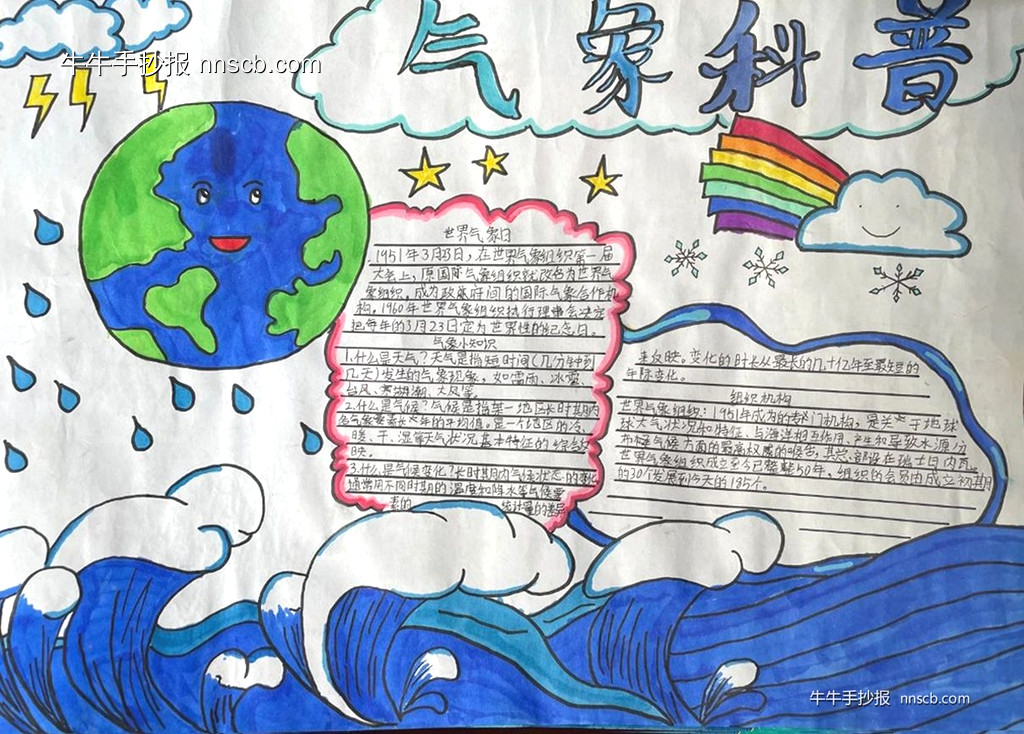 气象科普
牛牛手抄报 nnscb.com
世界气象日
1951年3月23日，在世界气象组织第一届
大会上，原国际气象组织就改名为世界气
象组织，成为政府间的国际气象合作机
构。1960年世界气象组织执行理事会决定
把每年的3月23日定为世界性的纪念日。
气象小知识
1.什么是天气？天气是指短时间（几分钟到
几天）发生的气象现象，如雷雨、冰雹、
台风、寒潮、大风等。
2.什么是气候？气候是指某一地区长时期内
年的平均值。是一个地区的冷、
暖、干、湿等天气状况基本特征的综合
映。
3.什么是气候变化？长时期内气候状态的变化
通常用不同时期的温度和降水等气候要
素的 统计量的差异
来反映。变化的时长从最长的几十亿年至最短的
年际变化。
组织机构
世界气象组织：1951年成为的专门机构，是关于地球
大气状况和特征、与海洋相互作用、产生和导致水源分
布气候方面的最高权威的喉舌，其总部设在瑞士日内瓦。
世界气象组织成立至今已整整50年，组织的会员由成立初期
的30个发展到今天的185个。
牛牛手抄报 nnscb.com